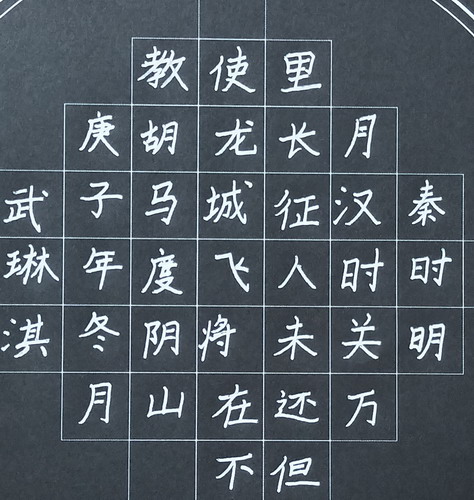 秦时明
月汉时关万
里长征人未还但
使龙城飞将在不
教胡马度阴山
庚子年冬月
武琳淇